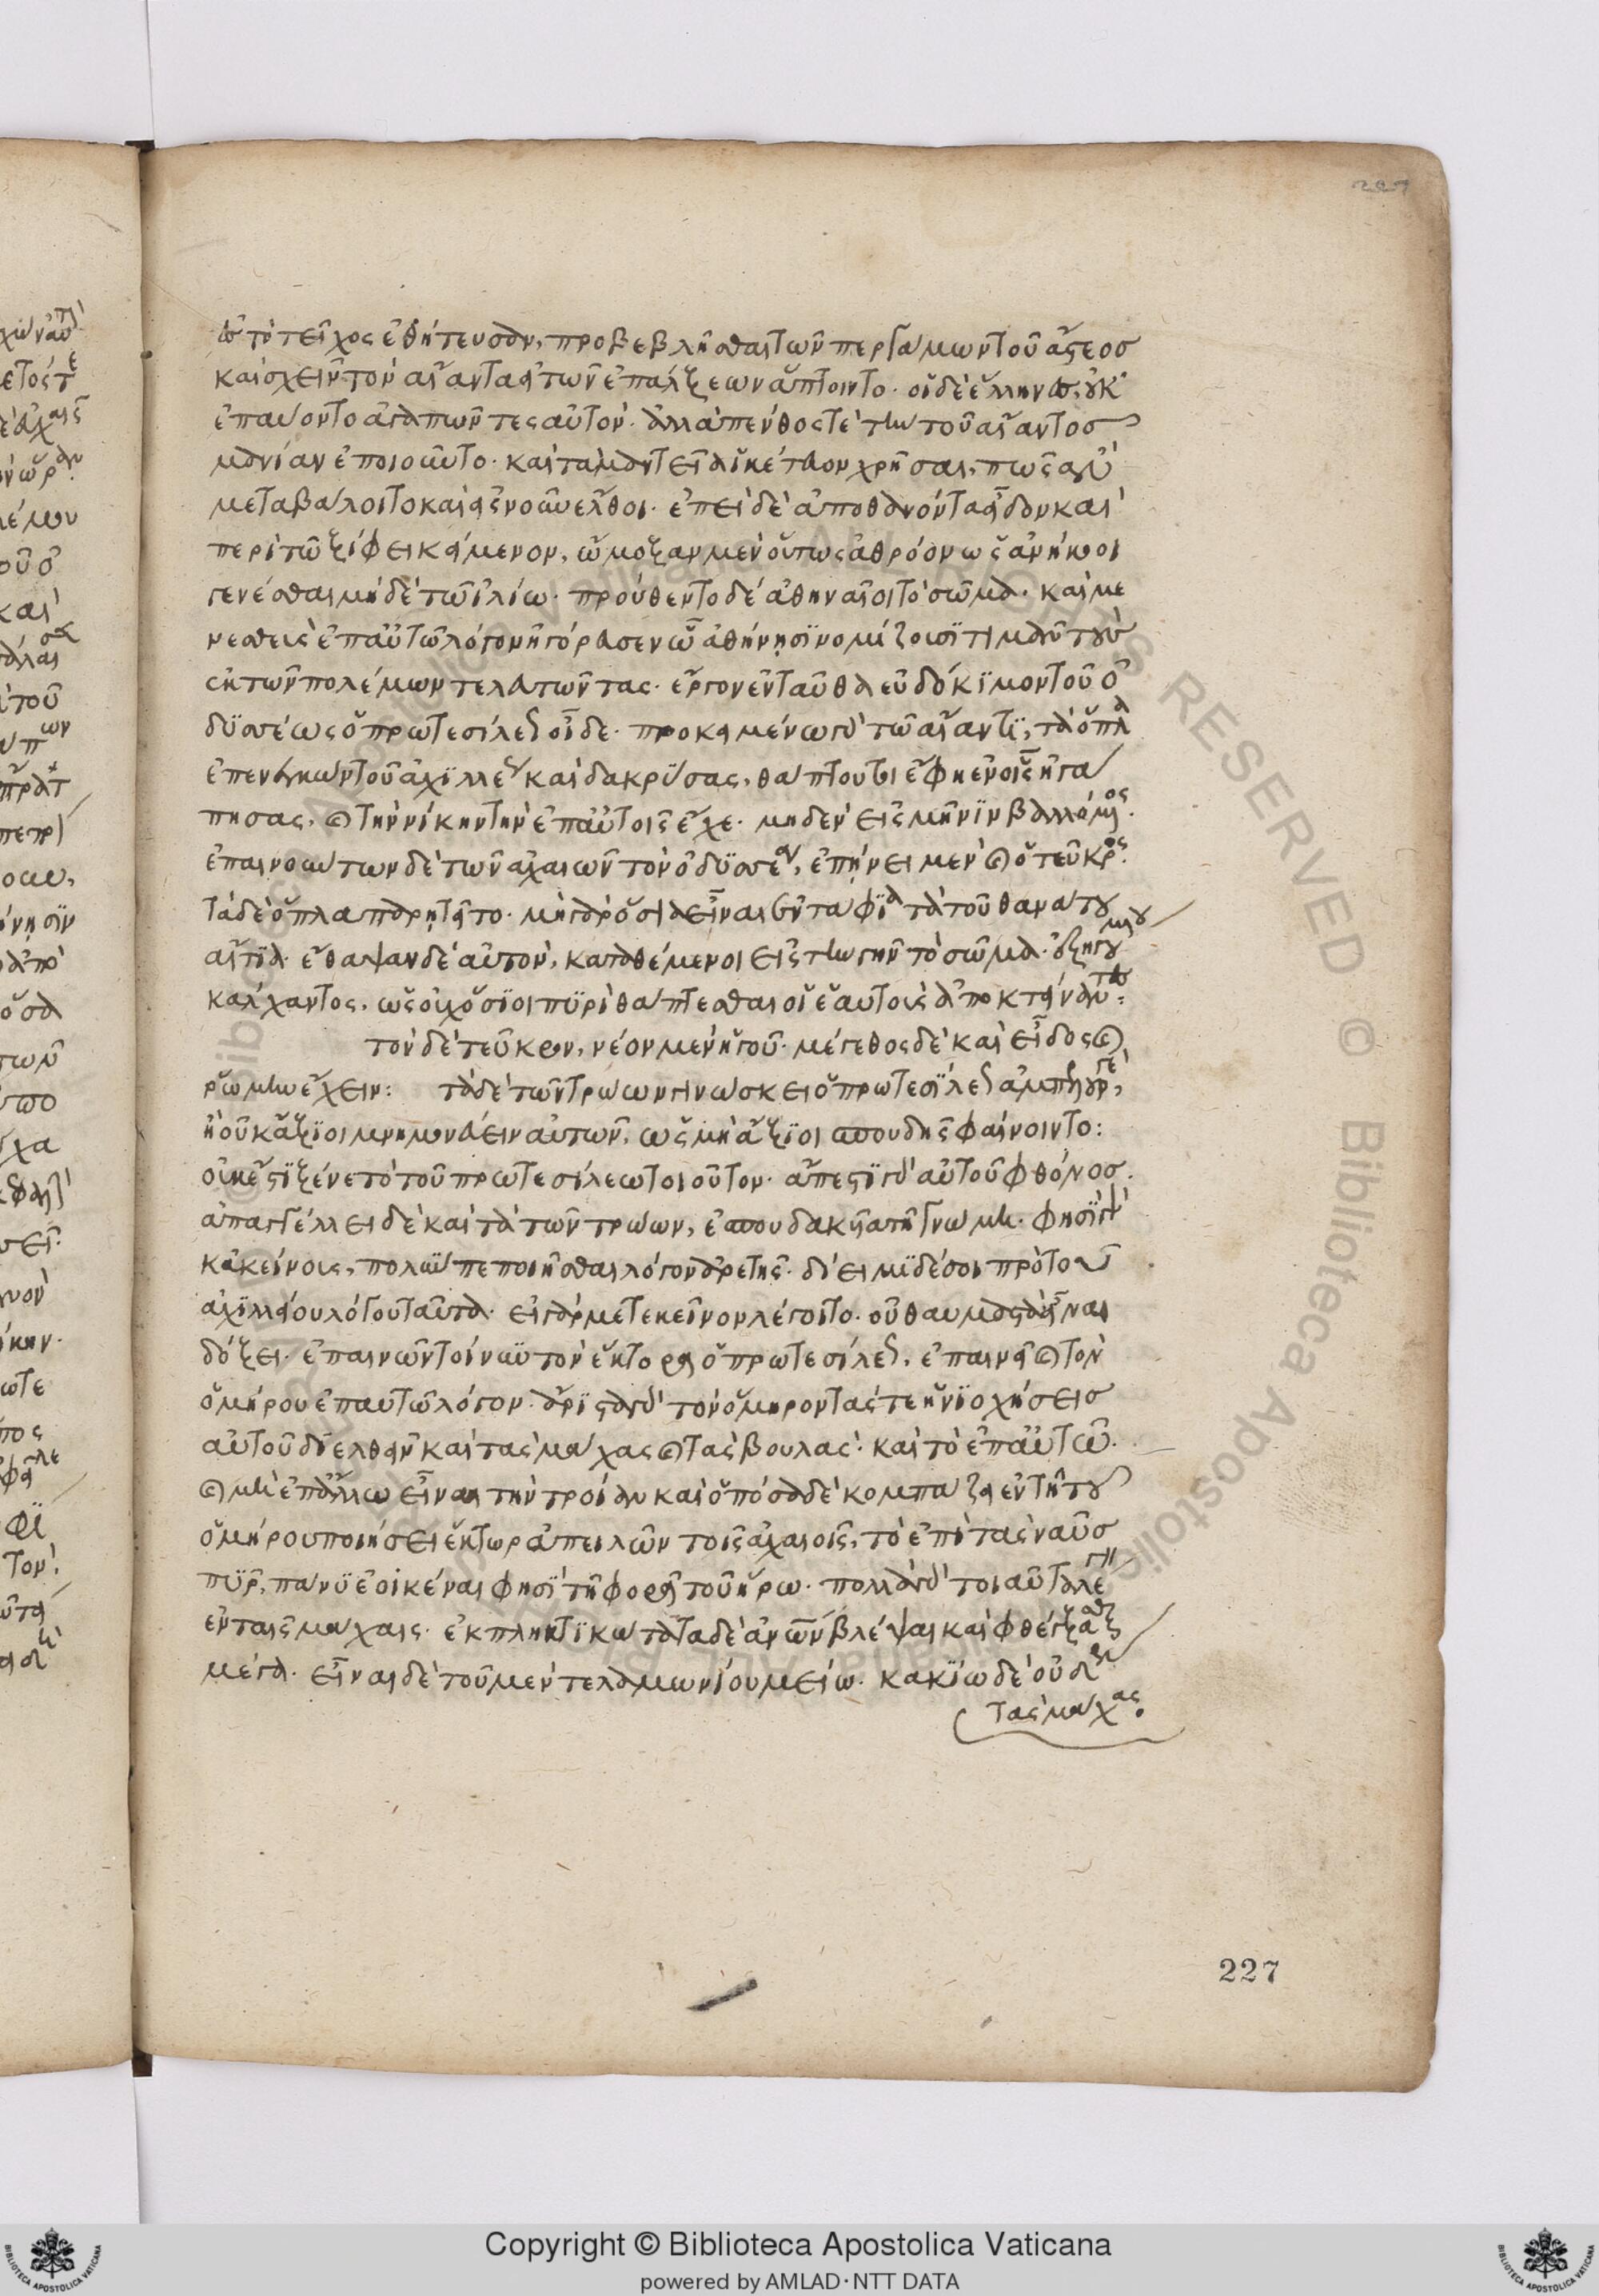 ὃ τὸ τεῖχος ἐθήτευσαν, προβεβλῆσθαι τῶν περγάμων τοῦ ἄστεος
καὶ σχεῖν τὸν αἴαντα εἰ τῶν ἐπάλξεων ἅπτοιντο. οἱ δὲ ἕλληνες, οὐκ
ἐπαύοντο ἀγαπῶντες αὐτόν. ἀλλὰ πένθος τὲ τὴν τοῦ αἴαντος
μανίαν ἐποιοῦντο. καὶ τὰ μαντεῖα ἱκέτευον χρῆσαι, πῶς ἂν
μεταβάλοιτο καὶ εἰς νοῦν ἔλθοι. ἐπεὶ δὲ ἀποθανόντα εἶδον καὶ
περὶ τῶ ξίφει κείμενον, ᾤμωξαν μὲν οὕτως ἀθρόον ὡς ἀνήκοοι
γενέσθαι μηδὲ τῶ ἰλίω. προύθεντο δὲ ἀθηναῖοι τὸ σῶμα. καὶ με
νεσθεὺς ἐπ αὐτῶ λόγον ἠγόρευσεν ὧ ἀθήνησϊ νομίζουσϊ τιμᾶν τοὺς
ἐκ τῶν πολέμων τελευτῶντας. ἔργον ἐνταῦθα εὐδόκϊμον τοῦ ὀ
δϋσσέως ὁ πρωτεσίλεως οἶδε. προκειμένω γὰρ τῶ αἴαντϊ, τὰ ὅπλα
ἐπενεγκὼν τοῦ ἀχϊλλέως καὶ δακρύσας, θάπτου τοι ἔφη ἐν οἷς ἠγά
πησας, καὶ τὴν νίκην τὴν ἐπ αὐτοῖς ἔχε. μηδὲν εἰς μῆνϊν βαλλόμενος.
ἐπαινούντων δὲ τῶν ἀχαιῶν τὸν ὀδϋσσέα, ἐπήνει μὲν καὶ ὁ τεῦκρος.
τὰ δὲ ὅπλα παρῃτεῖτο. μὴ γὰρ ὅσια εἶναι ἐντάφϊα τὰ τοῦ θανάτου
αἴτϊα. ἔθαψαν δὲ αὐτόν, καταθέμενοι εἰς τὴν γῆν τὸ σῶμα. ἐξηγουμένου
κάλχαντος, ὡς οὐχ ὅσϊοι πϋρὶ θάπτεσθαι οἱ ἑαυτοὺς ἀποκτείναντες:
τὸν δὲ τεῦκρον, νέον μὲν ἡγοῦ. μέγεθος δὲ καὶ εἶδος καὶ
ῥώμην ἔχειν: τὰ δὲ τῶν τρώων γινώσκει ὁ πρωτεσίλεως ἀμπελουργέ,
ἢ οὐκ ἄξϊοι μνημονεύειν αὐτῶν, ὡς μὴ ἄξϊοι σπουδῆς φαίνοιντο:
οὐκ ἔστϊ ξένε τὸ τοῦ πρωτεσίλεω τοιοῦτον. ἄπεστϊ γὰρ αὐτοῦ φθόνος.
ἀπαγγέλλει δὲ καὶ τὰ τῶν τρώων, ἐσπουδακυῖα τῆ γνώμη. φησὶ γὰρ
κἀκείνοις, πολὺν πεποιῆσθαι λόγον ἀρετῆς. δίειμϊ δέ σοι πρὸ τοῦ
ἀχϊλλείου λόγου ταῦτα. εἰ γὰρ μετ ἐκεῖνον λέγοιτο. οὐ θαυμαστὰ εἶναι
δόξει. ἐπαινῶν τοίνυν τὸν ἕκτορα ὁ πρωτεσίλεως, ἐπαινεῖ καὶ τὸν
ὁμήρου ἐπ αὐτῶ λόγον. ἄρϊστα γὰρ τὸν ὅμηρον τάς τε ἡνϊοχήσεις
αὐτοῦ διελθεῖν καὶ τὰς μάχας καὶ τὰς βουλάς. καὶ τὸ ἐπ αὐτῶ.
καὶ μὴ ἐπ ἄλλω εἶναι τὴν τροίαν καὶ ὁπόσα δὲ κομπάζει ἐν τῆ τοῦ
ὁμήρου ποιήσει ἕκτωρ ἀπειλῶν τοῖς ἀχαιοῖς, τὸ ἐπὶ τὰς ναῦς
πῦρ, πάνϋ ἐοικέναι φησϊ τῆ φορᾶ τοῦ ἥρω. πολλὰ γὰρ τοιαῦτα λέγειν
ἐν ταῖς μάχαις. ἐκπληκτϊκώτατα δὲ ἀνθρώπων βλέψαι καὶ φθέγξασθαι
μέγα. εἶναι δὲ τοῦ μὲν τελαμωνίου μείω. κακϊω δὲ οὐδὲν
τὰς μάχας.
227
Copyright © Biblioteca Apostolica Vaticana
powered by AMLAD·NTT DATA